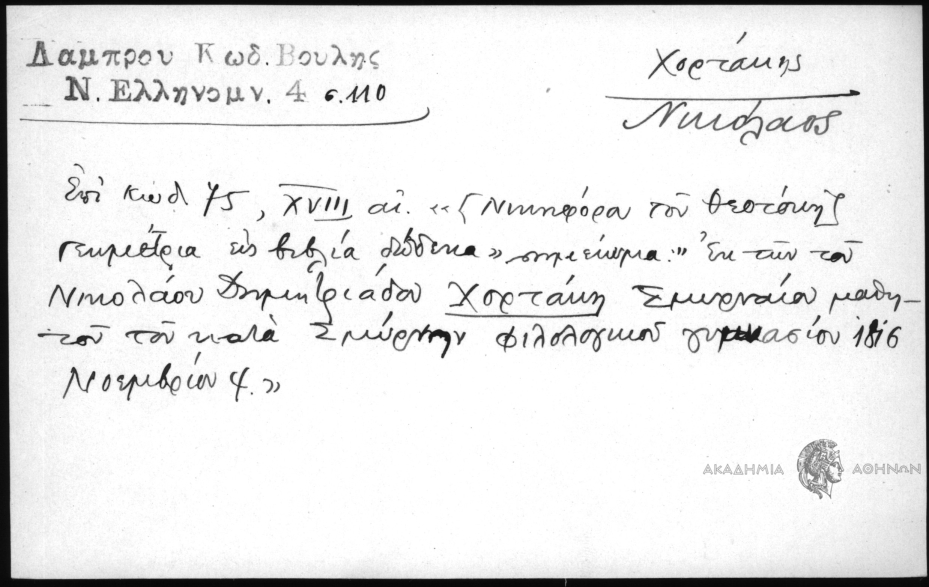 Λαμπρου Κωδ. Βουλης
Ν. Ελληνομν. 4 σ. 110
Χορτάκης
Νικόλαος
Ἐπὶ κωδ 75, XVIII αἰ. «[Νικηφόρα τοῦ Θεοτόκη]
Γεωμετρία εἰς βιβλία δώδεκα» σημείωμα: "Ἐκ τῶν τοῦ
Νικολάου Δημητριάδου Χορτάκη Σμυρναίου μαθη-
τοῦ τοῦ κατὰ Σμύρνην φιλολογικοῦ γυμνασίου 1816
Νοεμβρίου 4.»
ΑΚΑΔΗΜΙΑ ΑΘΗΝΩΝ